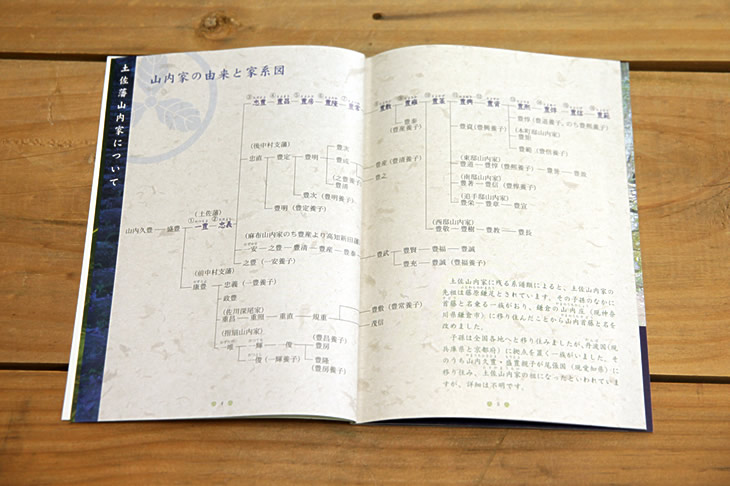 土佐藩山内家について
山内家の由来と家系図
③忠豊 ④豊昌 ⑤豊房 ⑥豊隆 ⑦豊常
豊敷 豊雍 豊策 豊興 豊資 豊熈 豊惇 豊信 豊範
豊泰
(豊産養子)
豊貞(豊興養子)
(本町邸山内家)
豊矩
(東邸山内家)
(南邸山内家)
豊著 豊信(豊惇養子)
(追手邸山内家)
豊栄 豊章 豊宣
(西邸山内家)
豊敬 豊樹 豊教 豊長
(後中村支藩)
忠直 豊定 豊明
豊次
豊成
豊産(豊清養子)
(之豊養子)
豊清
豊之
豊次(豊明養子)
豊明(豊定養子)
(土佐藩)
山内久豊 盛豊 ①一豊 ②忠義
(麻布山内家のち豊産より高知新田藩)
一安 之豊 豊清 豊産 豊泰
豊武 豊賢 豊福 豊誠
豊充 豊誠(豊福養子)
之豊(一安養子)
(前中村支藩)
康豊 忠義(一豊養子)
政豊
(佐川深尾家)
重昌 重照 重直 規重
豊敷(豊常養子)
茂信
(指扇山内家)
一唯 一輝 一俊
(豊昌養子)
豊房
一俊(一輝養子)
豊隆
(豊房養子)
土佐山内家に残る系譜類によると、土佐山内家の
先祖は藤原鎌足とされています。その子孫のなかに
首藤と名乗る一族がおり、鎌倉の山内庄(現神奈
川県鎌倉市)に移り住んだことから山内首藤と名を
改めました。
子孫は全国各地へと移り住みましたが、丹波国(現
兵庫県と京都府)に拠点を置く一族がいました。そ
のうち山内久豊・盛豊親子が尾張国(現愛知県)に
移り住み、土佐山内家の祖になったといわれていま
すが、詳細は不明です。
4
5